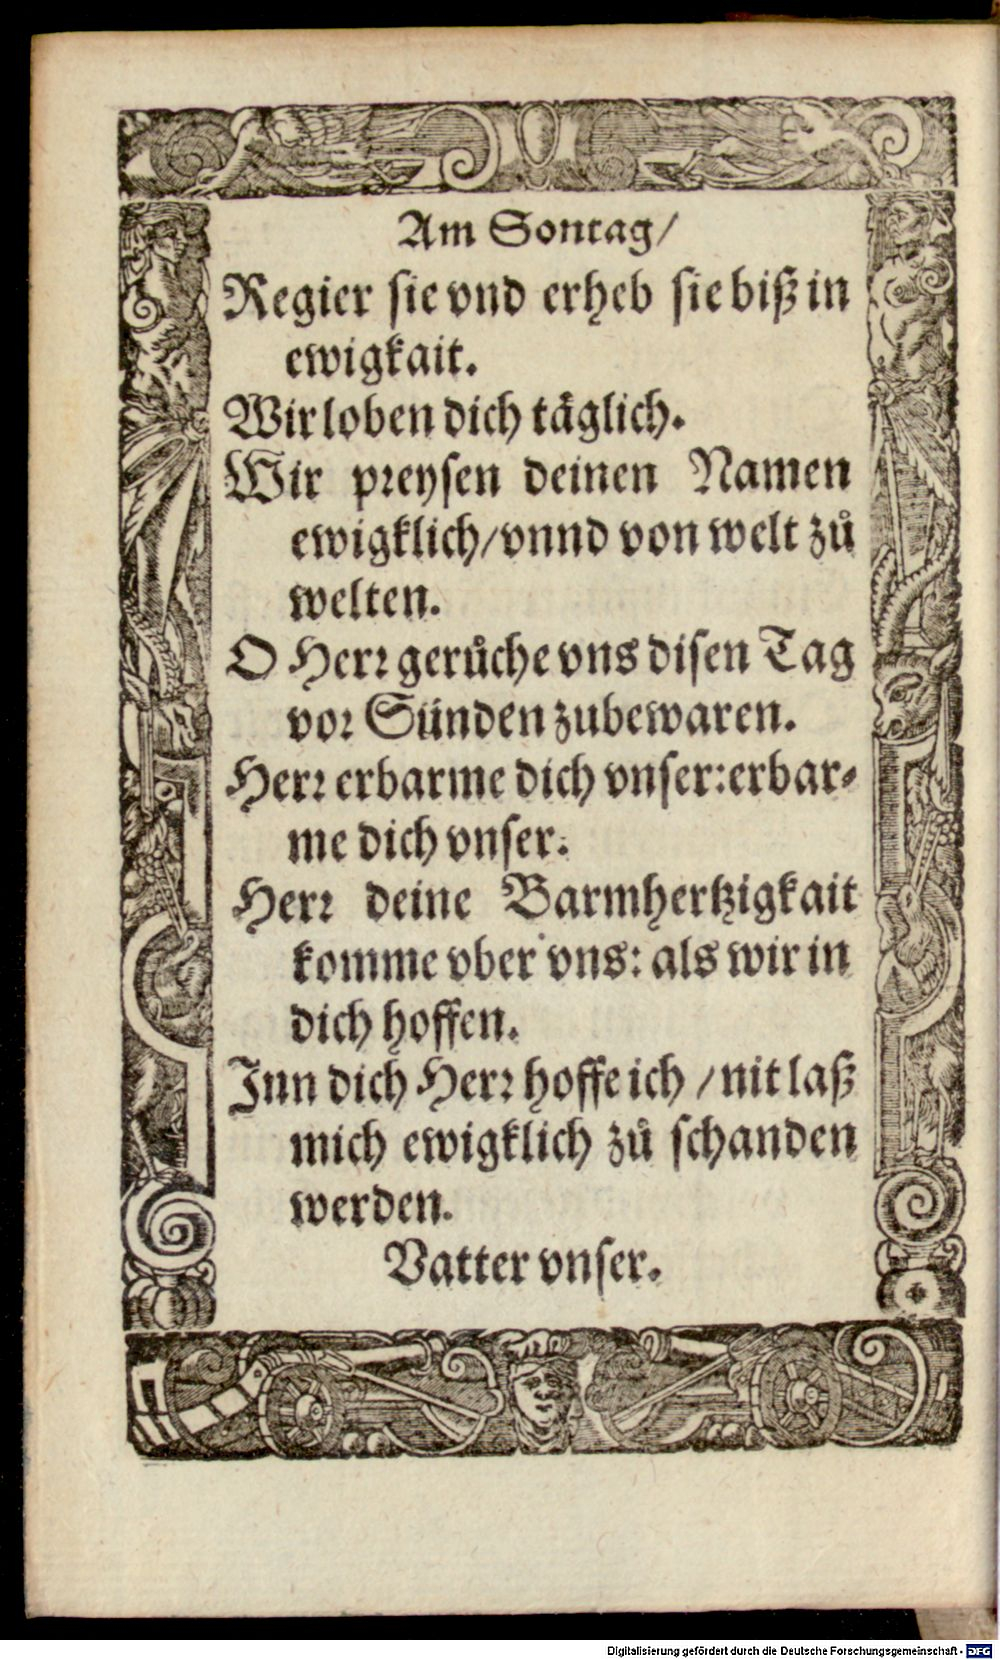 Am Sontag/
Regier sie vnd erheb sie biß in
ewigkait.
Wir loben dich täglich.
Wir preysen deinen Namen
ewigklich/vnnd von welt zů
welten.
O Herr gerůche vns disen Tag
vor Sünden zubewaren.
Herr erbarme dich vnser: erbar-
me dich vnser.
Herr deine Barmhertzigkait
komme vber vns: als wir in
dich hoffen.
Inn dich Herr hoffe ich / nit laß
mich ewigklich zů schanden
werden.
Vatter vnser.
Digitalisierung gefördert durch die Deutsche Forschungsgemeinschaft - DFG